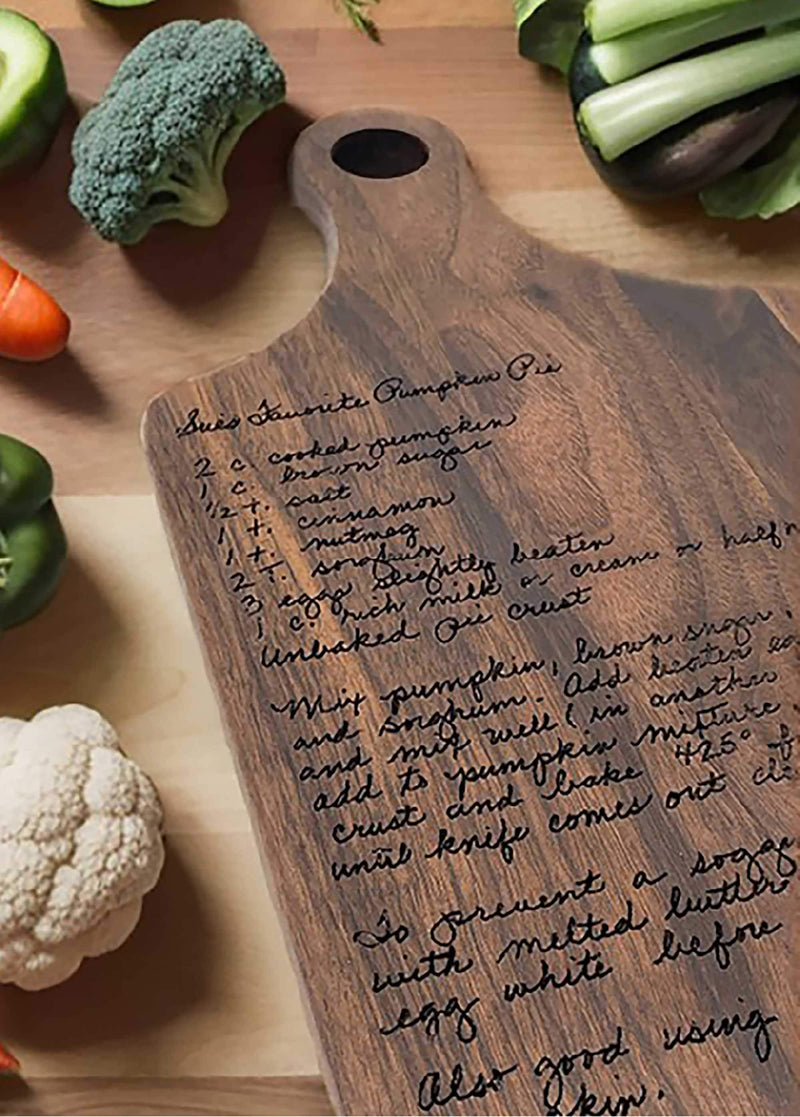 Sue's Favorite Pumpkin Pie
2 c. cooked pumpkin
1 c. brown sugar
1/2 t. salt
1 t. cinnamon
1 t. nutmeg
2 T. sorghum
3 eggs slightly beaten
1 c. rich milk or cream or half n
Unbaked pie crust
Mix pumpkin, brown sugar,
and sorghum. Add beaten
and mix well (in another
add to pumpkin mixture
crust and bake 425°
until knife comes out
To prevent a
with melted butter
egg white before
Also good using